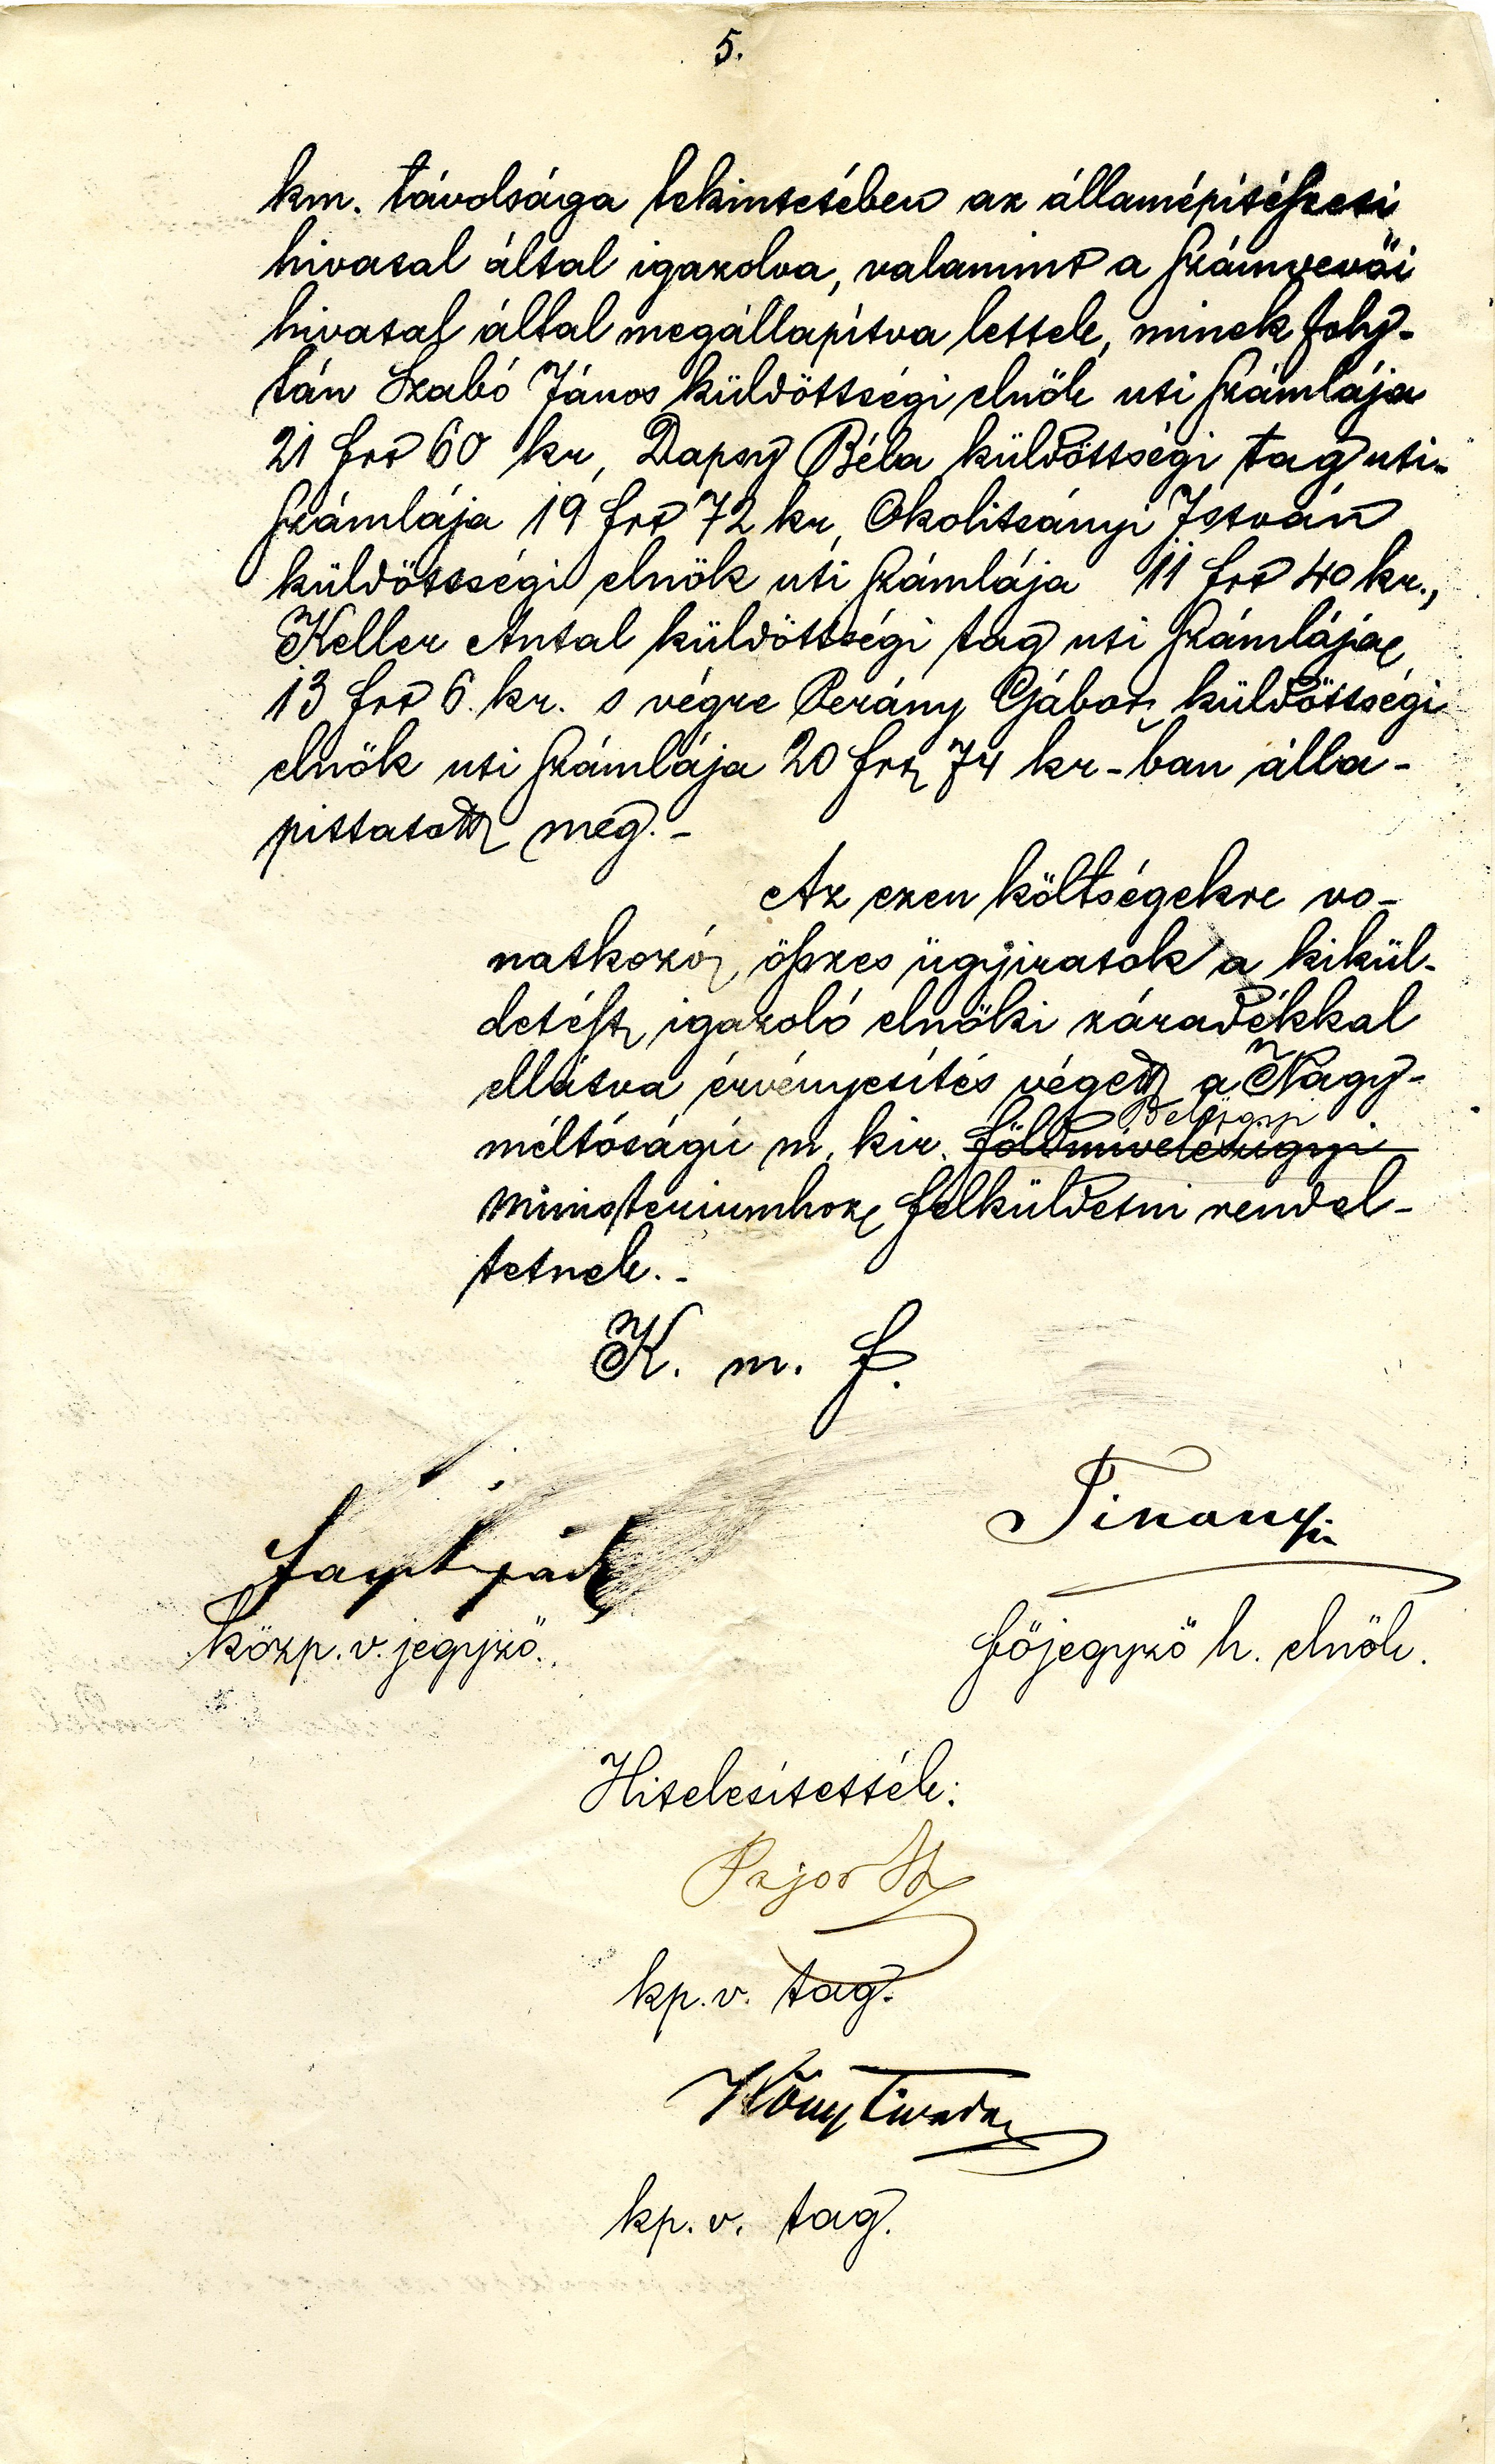 5.
km. távolsága tekintetében az államépitészeti
hivatal által igazolva, valamint a számvevői
hivatal által megállapítva lettek, minek foly-
tán Szabó János küldöttségi elnök uti számlája
21 frt 60 kr, Dapsy Béla küldöttségi tag uti-
számlája 19 frt 72 kr, Okolitsányi István
küldöttségi elnök uti számlája 11 frt 40 kr.,
Keller Antal küldöttségi tag uti számlája
13 frt 6. kr. s végre Perány Gábor küldöttségi
elnök uti számlája 20 frt 74 kr-ban álla-
pittatott meg.-
Az ezen költségekre vo-
natkozó összes ügyiratok a kikül-
detést igazoló elnöki záradékkal
ellátva érvényesítés végett a Nagy-
belügyi
méltóságú m. kir. földmivelésügyi
ministeriumhoz felküldetni rendel-
tetnek.-
K. m. f.
Tihanyi
közp. v. jegyző.
főjegyző h. elnök.
Hitelesítették:
Pajor
kp. v. tag.
Köny Tivadar
kp. v. tag.